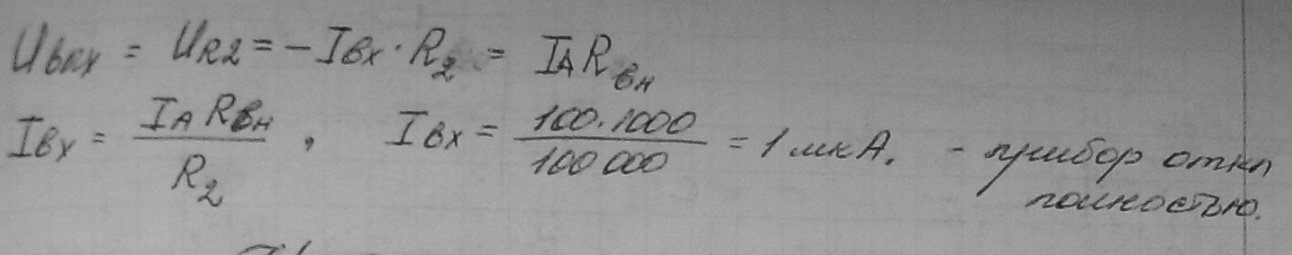 Uвых = UR2 = −Iвх · R2 = IА Rвн
Iвх = IА Rвн / R2 , Iвх = 100·1000 / 100 000 = 1 мкА. - прибор откл
полностью.